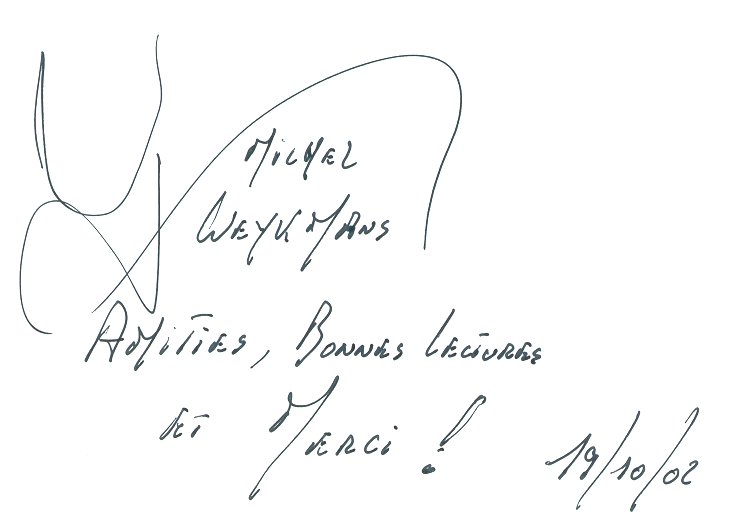 Michel
Weykmans
Amitiés, Bonnes Lectures
et Merci !
19/10/02